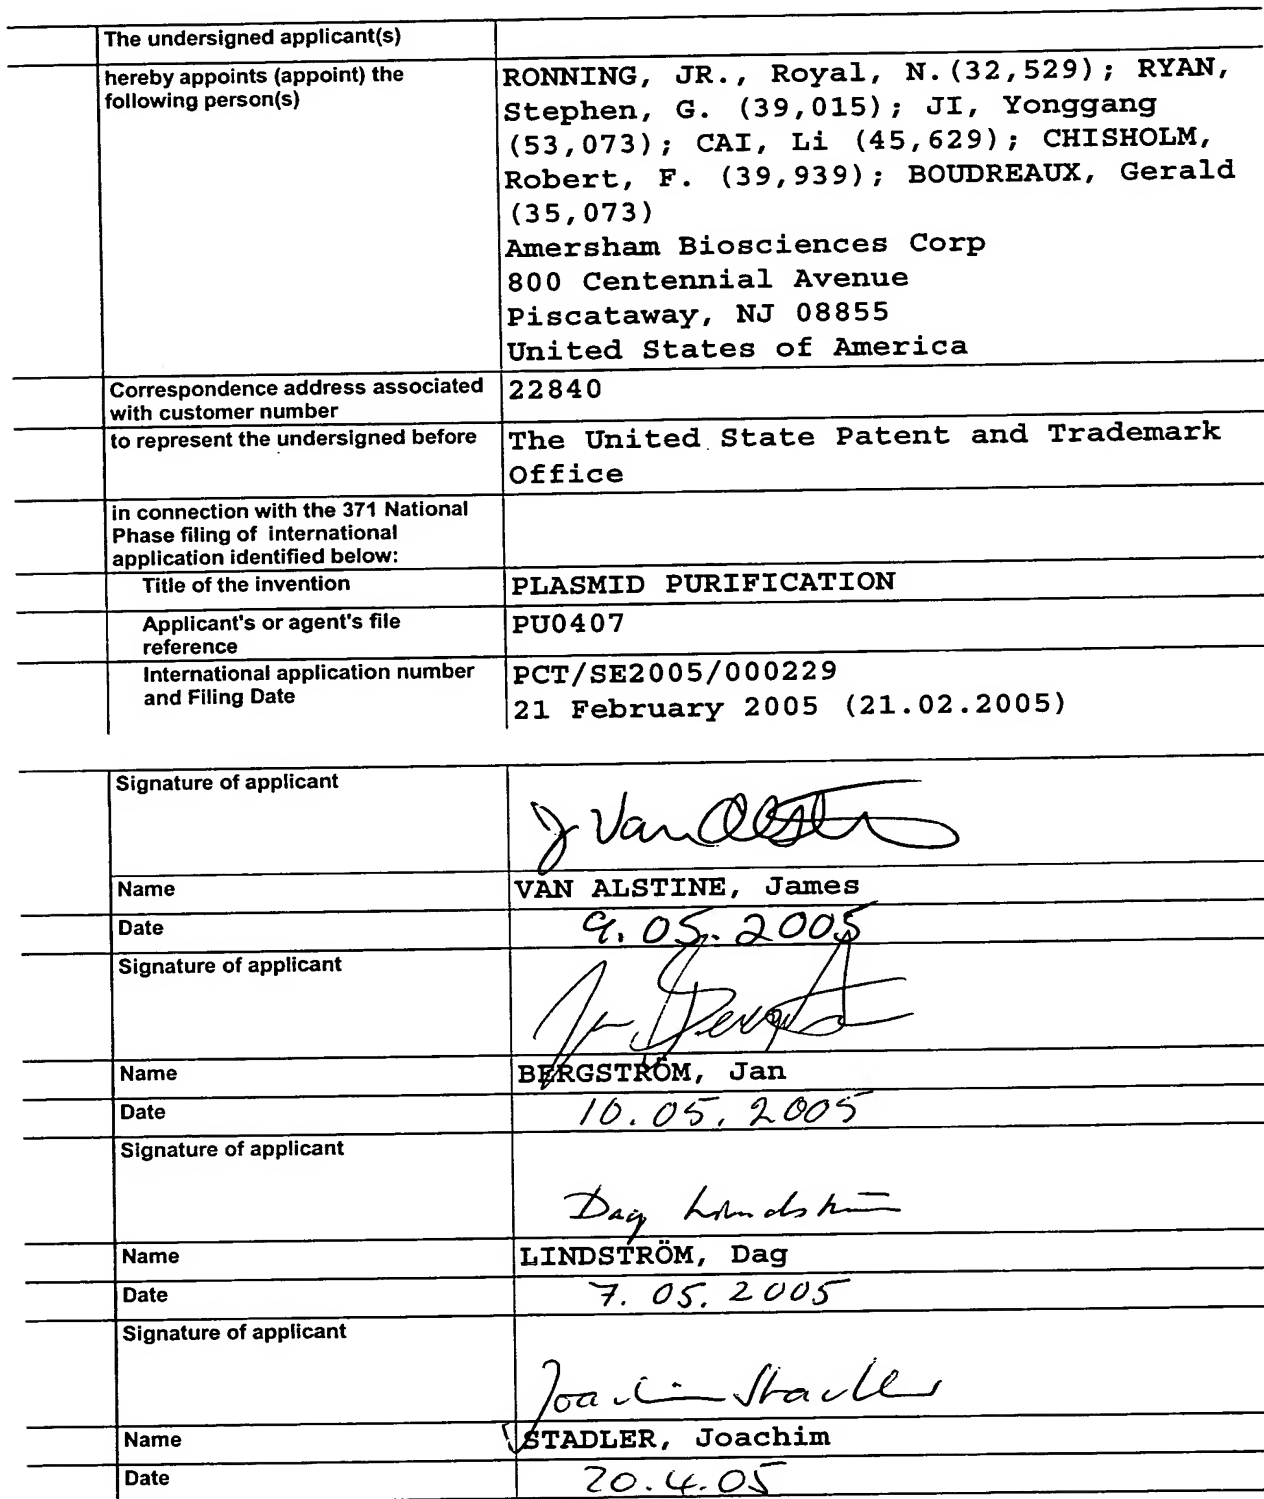 The undersigned applicant(s)
hereby appoints (appoint) the
following person(s)
RONNING, JR., Royal, N.(32,529); RYAN,
Stephen, G. (39,015); JI, Yonggang
(53,073); CAI, Li (45,629); CHISHOLM,
Robert, F. (39,939); BOUDREAUX, Gerald
(35,073)
Amersham Biosciences Corp
800 Centennial Avenue
Piscataway, NJ 08855
United States of America
Correspondence address associated
with customer number
22840
to represent the undersigned before
The United State Patent and Trademark
Office
in connection with the 371 National
Phase filing of international
application identified below:
Title of the invention
PLASMID PURIFICATION
Applicant's or agent's file
reference
PU0407
International application number
and Filing Date
PCT/SE2005/000229
21 February 2005 (21.02.2005)
Signature of applicant
J Van Alstine
Name
VAN ALSTINE, James
Date
9.05.2005
Signature of applicant
Name
BERGSTRÖM, Jan
Date
10.05.2005
Signature of applicant
Dag Lindström
Name
LINDSTRÖM, Dag
Date
7.05.2005
Signature of applicant
Joachim Stadler
Name
STADLER, Joachim
Date
20.4.05